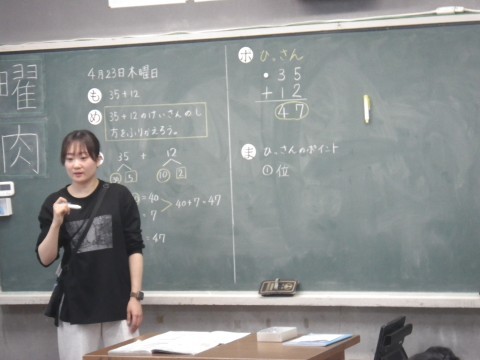 曜
肉
4月23日木曜日
も 35+12
め 35+12のけいさんのし
方をふりかえろう。
35 + 12
30 5 10 2
=40
=7
40+7=47
=47
ホ ひっさん
35
+12
47
ま ひっさんのポイント
① 位